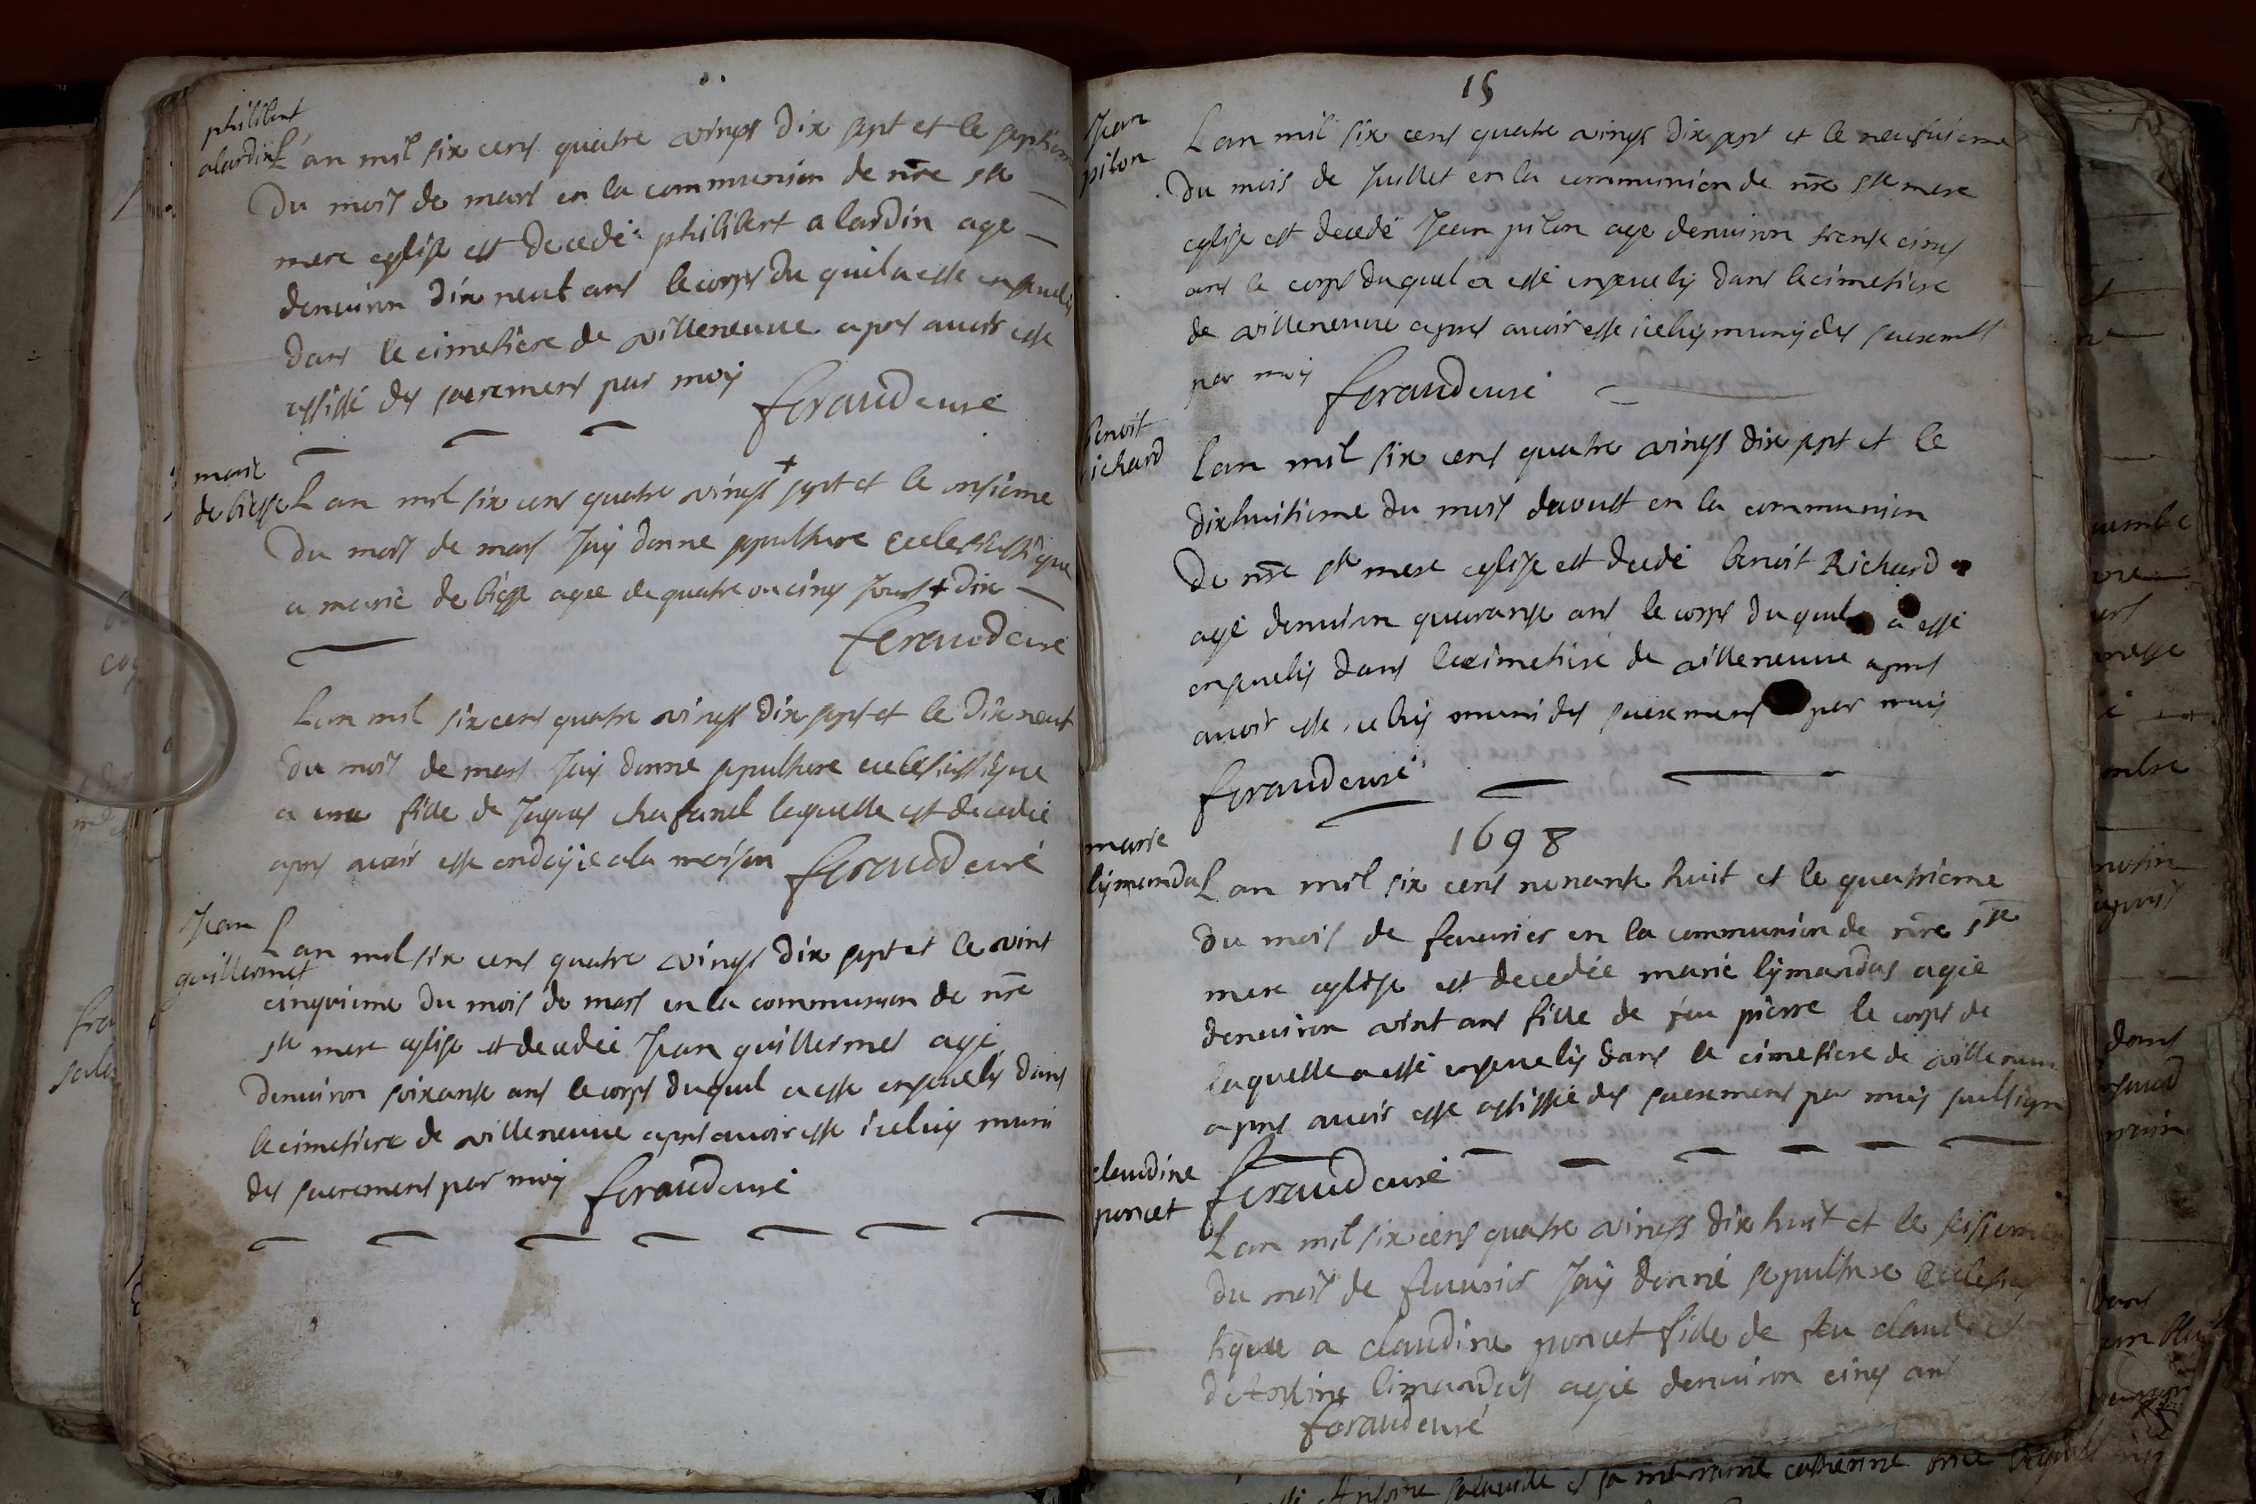 philibert
alardin
L'an mil six cens quatre vings dix sept et le septieme
du mois de mars en la communion de nre ste
mere eglise est decedé philibert alardin age
denviron dix neut ans le corps du quel a esté enseuelis
dans le cimetiere de villeneuue apres auoir esté
assisté des sacremens par moy
feraud curé
marie
de biesse
L an mil six cens quatre vings + sept et le onsieme
du mois de mars Jay donne sepulture ecclesiastique
a marie de biesse agee de quatre ou cinq Jours + dix
feraud curé
Lan mil six cens quatre vings dix sept et le dix neut
du mois de mars Jay donne sepulture ecclesiastique
a une fille de Jaques chafanel laquelle est decedée
apres auoir esse ondoyie a la maison feraud curé
Jean
guillermet
Lan mil six cens quatre vings dix sept et le vint
cinquieme du mois de mars en la communion de nre
ste mere eglise est decedée Jean guillermet agé
denuiron soixante ans le corps duquel a esse enseuelis dans
le cimetiere de villeneuue apres auoir esse iceluy muni
des sacremens par moy feraud curé
15
Jean
pilon
Lan mil six cens quatre vings dix sept et le neufuieme
du mois de Juillet en la communion de nre ste mere
eglise est decedé Jean pilon age denuiron trente cinq
ans le corps duquel a esté enseuelis dans le cimetiere
de villeneuue apres auoir esse iceluy muny des sacremts
par moy feraud curé
benoit
richard
Lan mil six cens quatre vings dix sept et le
dixhuitieme du mois daoust en la communion
de nre ste mere eglise est decedé benoit Richard
agé denuiron quarante ans le corps du quel a esté
enseuelis dans le cimetiere de villeneuue apres
auoir esse iceluy muni des sacremens par moy
feraud curé
1698
marie
lymandas
Lan mil six cens nonante huit et le quatrieme
du mois de feuurier en la communion de nre ste
mere eglise est decedée marie lymandas agée
denuiron vint ans fille de feu pierre le corps de
laquelle a esté enseuelis dans le cimetiere de villeneuue
apres auoir esse assistée des sacremens par moy soussigne
feraud curé
claudine
poncet
Lan mil six cens quatre vings dix huit et le sisieme
du mois de feuurier Jay donné sepulture ecclesias
tique a claudine poncet fille de feu claude et
limandas agée denuiron cinq ans
feraud curé